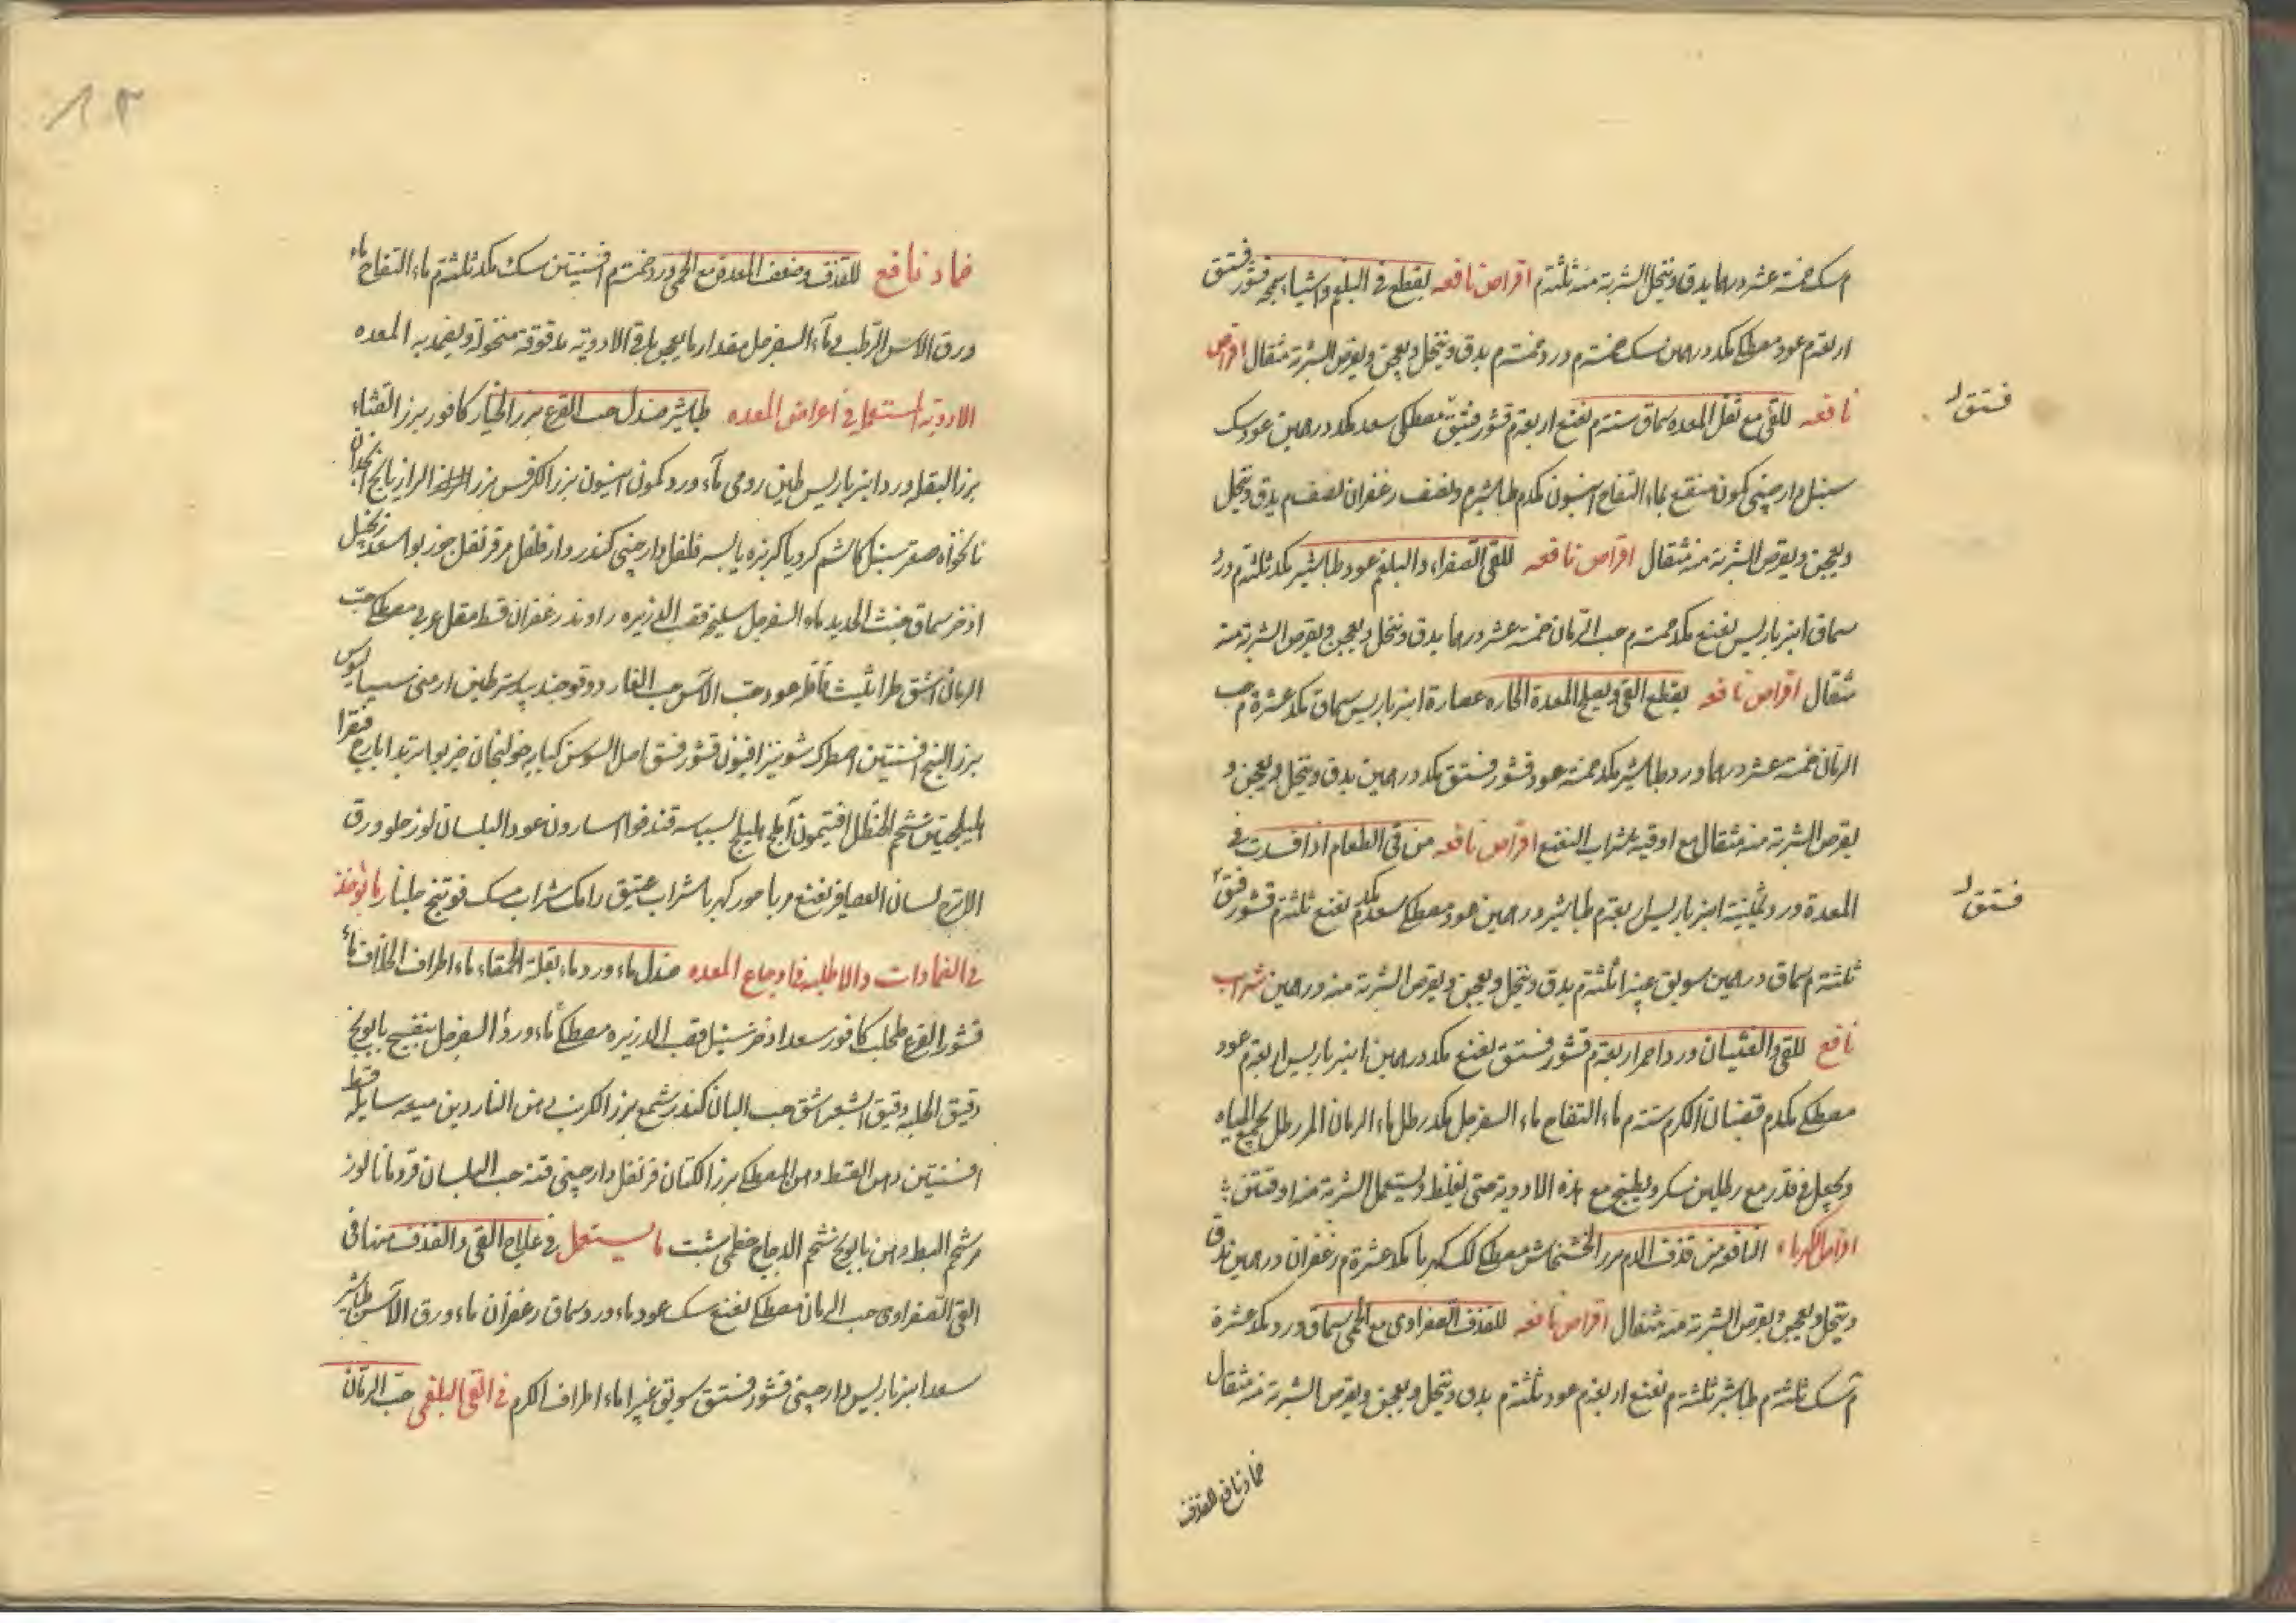 م سك خمسة عشر درهما يدق وينخل الشربة منه ثلثة م اقراص نافعه يقطع في البلغم واشياء سمجه قشور فستق
اربعة م عود مصطكى مكد درهمين سك خمسة م ورد خمسة م يدق وينخل ويعجن ويقرص الشربة مثقال اقراص
نافعه للقئ مع ثقل المعده سماق ستة م نعنع اربعة م قشور فستق مصطكى سعد مكد درهمين عود سك
سنبل دارصينى كمون منقع بماء التفاح انيسون مكد م طباشير م ونصف زعفران نصف م يدق وينخل
ويعجن ويقرص الشربة منه مثقال اقراص نافعه للقئ الصفراء والبلغم عود طباشير مكد ثلثة م ورد
سماق انبرباريس نعنع مكد خمسة م حب الرمان خمسة عشر درهما يدق وينخل ويعجن ويقرص الشربة منه
مثقال اقراص نافعه يقطع القئ ويصلح المعدة الحاره عصارة انبرباريس سماق مكد عشرة م حب
الرمان خمسة عشر درهما ورد طباشير مكد خمسة عود قشور فستق مكد درهمين يدق وينخل ويعجن و
يقرص الشربة منه مثقال مع اوقية شراب النعنع اقراص نافعه من قئ الطعام اذا فسدت في
المعدة ورد ثمانية انبرباريس اربعة م طباشير درهمين عود مصطكى سعد مكد م نعنع ثلثة م قشور فستق
ثلثة م سماق درهمين سويق غبيرا ثلثة م يدق وينخل ويعجن ويقرص الشربة منه درهمين شراب
نافع للقئ والغثيان ورد احمر اربعة م قشور فستق نعنع مكد درهمين انبرباريس اربعة م عود
مصطكى مكد م قضبان الكرم ستة م ماء التفاح ماء السفرجل مكد رطل ماء الرمان المر رطل يجمع المياه
ويجعل في قدر مع رطلين سكر ويطبخ مع هذه الادوية حتى يغلظ ويستعمل الشربة منه اوقيتين
اقراص الكهرباء النافعه من قذف الدم بزر الخشخاش مصطكى لك كهربا مكد عشرة م زعفران درهمين يدق
وينخل ويعجن ويقرص الشربة منه مثقال اقراص نافعه للقذف الصفراوى مع الحمى سماق ورد مكد عشرة
م سك ثلثة م طباشير ثلثة م نعنع اربعة م عود ثلثة م يدق وينخل ويعجن ويقرص الشربة منه مثقال
ضماد نافع للقذف
فستق
فستق
ضماد نافع للقذف وضعف المعدة مع الحمى ورد خمسة م افسنتين سك مكد ثلثة م ماء التفاح ماء
ورق الاس الرطب وماء السفرجل مقدار ما يعجن باقى الادوية مدقوقة منخولة ويضمد به المعده
الادوية المستعمل في اعراض المعده طباشير صندل حب القرع بزر الخيار كافور بزر القثاء
بزر البقله ورد انبرباريس طين رومى ماء ورد كمون انيسون بزر الكرفس بزر الرازيانج انجدان
نانخواه صعتر سنبل كاشم كرويا كزبره يابسه فلفل دارصينى كندر دارفلفل مر قرنفل جوزبوا سعد زنجبيل
اذخر سماق خبث الحديد ماء السفرجل سليخه قصب الذريره راوند زعفران قسط مقل عربى مصطكى حب
الرمان اشق طراثيث عود حب الآس حب الغار دوقو جندبيدستر طين ارمنى سيساليوس
بزر البنج افسنتين اصطرك شونيز افيون قشور فستق اصل السوسن كبابه خولنجان خيربوا تربد ايارج فيقرا
اهليلجين شحم الحنظل افتيمون آملج بليلج بسباسه اسارون عود البلسان لوز حلو ورق
الاترج لسان العصافير نعنع مربا كهربا شراب عتيق رامك شراب مسك فوتنج جلنار ما يؤخذ
في الضمادات والاطليه في اوجاع المعده صندل ماء ورد ماء بقلة الحمقاء ماء اطراف الخلاف ماء
قشور القرع طحلب كافور سعد اذخر سنبل قصب الذريره مصطكى ماء ورد السفرجل بنفسج بابونج
دقيق الحلبه دقيق الشعير اشق حب البان كندر شمع بزر الكرنب دهن الناردين ميعه سايله قسط
افسنتين دهن القسط دهن المصطكى بزر الكتان قرنفل دارصينى قنه حب البلسان قردمانا لوز
مر شحم البط دهن بابونج شحم الدجاج خطمى شبت ما يستعمل في علاج القئ والقذف منها في
القئ الصفراوى حب الرمان مصطكى نعنع سك عود ماء ورد سماق زعفران ماء ورق الآس طباشير
سعد انبرباريس دارصينى قشور فستق سويق غبيرا ماء اطراف الكرم في القئ البلغمى حب الرمان